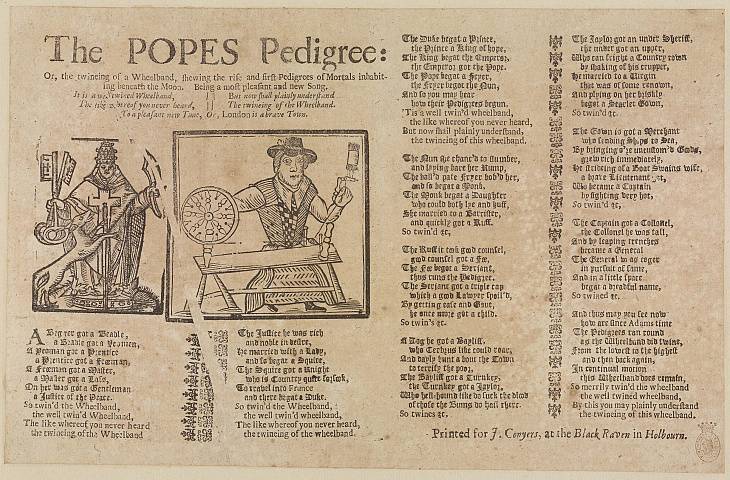 The POPES Pedigree:
Or, the twineing of a Wheelband, shewing the rise and first Pedigrees of Mortals inhabit-
ing beneath the Moon. Being a most pleasant and new Song.
It is a well twined Wheelband, But now shall plainly understand
The like whereof you never heard, The twineing of the Wheelband.
To a pleasant new Tune, Or, London is a brave Town.
A Begger got a Beadle,
a Beadle got a Yeomen,
A Yeoman got a Prentice
a Prentice got a Freeman,
A Freeman got a Master,
a Master got a Lass,
On her was got a Gentleman
a Justice of the Peace.
So twin'd the Wheelband,
the well twin'd Wheelband,
The like whereof you never heard
the twineing of the Wheelband
The Justice he was rich
and noble in desire,
He married with a Lady,
and so begat a Squire.
The Squire got a Knight
who is Country quite forsook,
To travel into France
and there begat a Duke.
So twin'd the Wheelband,
the well twin'd wheelband,
The like whereof you never heard,
the twineing of the wheelband.
The Duke begat a Prince,
the Prince a King of hope,
The King begat the Emperor,
the Emperor got the Pope.
The Pope begat a Fryer,
the Fryer begat the Nun,
And so you may hear
how their Pedigrees begun.
'Tis a well twin'd wheelband,
the like whereof you never heard,
But now shall plainly understand,
the twineing of this wheelband.
The Nun she chanc'd to slumber,
and laying bare her Rump,
The bal'd pate Fryer bob'd her,
and so begat a Monk.
The Monk begat a Daughter
who could both lye and huff,
She married to a Barrister,
and quickly got a Ruff.
So twin'd &c,
The Ruff it took good counsel,
good counsel got a Fee,
The Fee begot a Serjant,
thus runs the Pedigree.
The Serjant got a triple cap
which a good Lawyer spoil'd,
By getting ease and Gout,
he once more got a child.
So twin's &c.
A Dog he got a Bayliff,
who Cerbyus like could roar,
And daply hunt a bout the Town
to terrify the poor,
The Bayliff got a Turnkey,
the Turnkey got a Jaylor,
Who hell-hound like do suck the blod
of those the Bums do hail there.
So twines &c.
The Jaylor got an under Sheriff,
the under got an upper,
Who can fright a Country town
by shaking of his crupper,
He married to a Virgin
this was of some renown,
And plying on her briskly
begat a Scarlet Gown,
So twin'd &c.
The Gown is got a Merchant
who sending Ships to Sea,
By bringing o're uncustom'd Gods,
grew rich immediately,
He striding of a Boat Swains wife,
a brave Lieutenant got,
We became a Captain
by fighting very hot,
So twin'd &c.
The Captain got a Collonel,
the Collonel he was tall,
And by leaping trenches
became a General
The General w as eager
in pursuit of fame,
And in a little space
begat a dreadful name,
So twined &c.
And thus may you see now
how are since Adams time
The Pedigrees ran round
as the Wheelband did twine,
From the lowest to the highest
and then back again,
In continual motion
this Wheelband does remain,
So merrily twin'd the wheelband
the well twined wheelband,
By this you may plainly understand
the twineing of this wheelband.
Printed for J. Conyers, at the Black Raven in Holbourn.